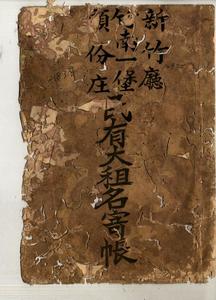 新竹廳
竹南一堡
頭份庄
民有大租名寄帳